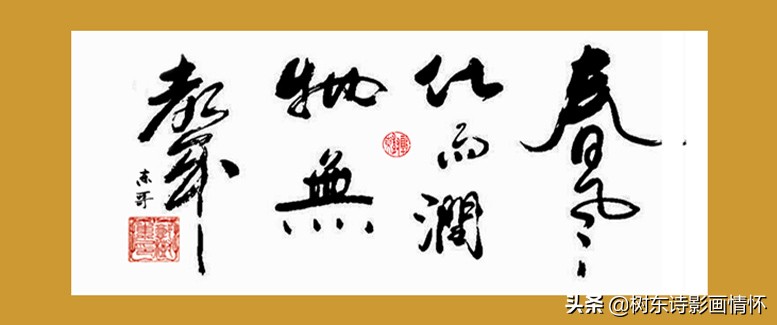 春風
化雨潤
物無
聲
东哥
头条 @树东诗影画情怀